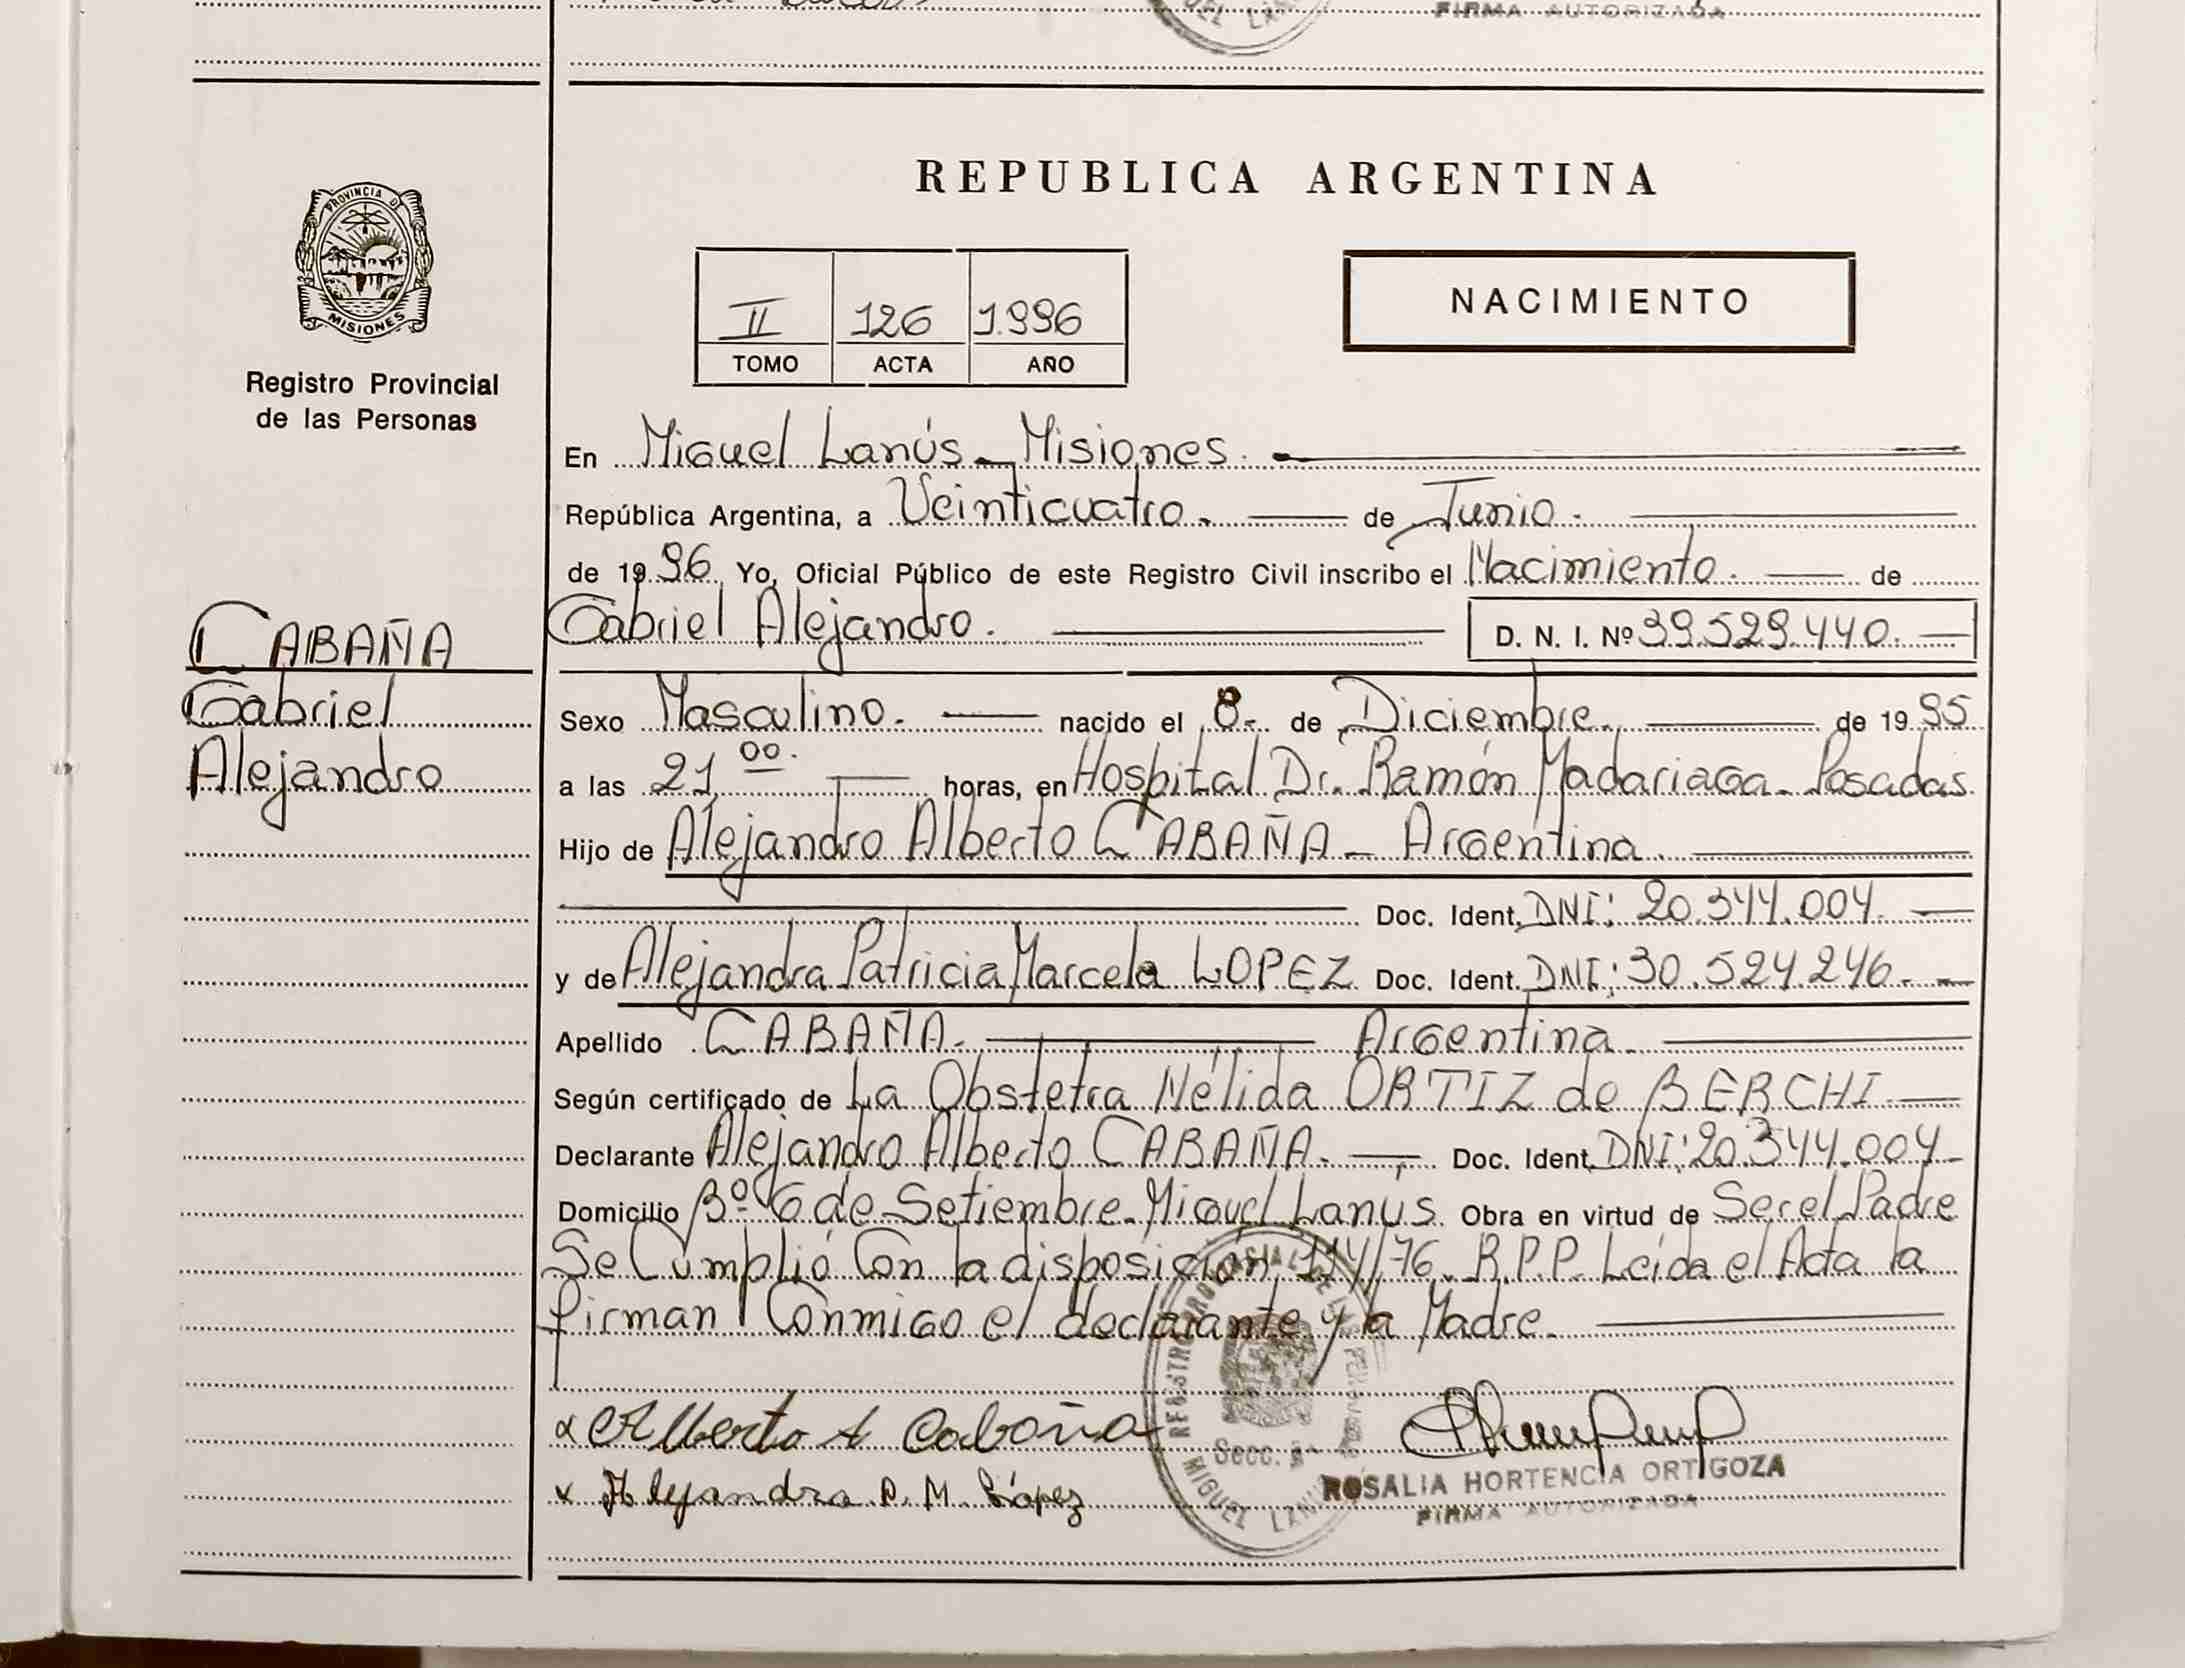 FIRMA AUTORIZADA
REPUBLICA ARGENTINA
PROVINCIA DE
MISIONES
Registro Provincial
de las Personas
II 126 1996
TOMO ACTA AÑO
NACIMIENTO
En Miguel Lanús - Misiones.
República Argentina, a Veinticuatro. de Junio.
de 1996 Yo, Oficial Público de este Registro Civil inscribo el Nacimiento. de
CABAÑA
Gabriel
Alejandro
Gabriel Alejandro. D. N. I. Nº 39.529.440.
Sexo Masculino. nacido el 8. de Diciembre. de 1995
a las 21 00. horas, en Hospital Dr. Ramón Madariaga - Posadas
Hijo de Alejandro Alberto CABAÑA - Argentina.
Doc. Ident. DNI: 20.344.004.
y de Alejandra Patricia Marcela LOPEZ Doc. Ident. DNI: 30.524.246.
Apellido CABAÑA. Argentina.
Según certificado de La Obstetra Nélida ORTIZ de BERCHI
Declarante Alejandro Alberto CABAÑA. Doc. Ident. DNI: 20.344.004
Domicilio Bº 6 de Setiembre - Miguel Lanus. Obra en virtud de Ser el Padre
Se Cumplió Con la disposición 114/76. R.P.P. Leída el Acta la
firman Conmigo el declarante y la Madre.
x Alberto A Cabaña
x Alejandra P. M. López
REGISTRO PROVINCIAL DE LAS PERSONAS
Secc.
MIGUEL LANUS
ROSALIA HORTENCIA ORTIGOZA
FIRMA AUTORIZADA